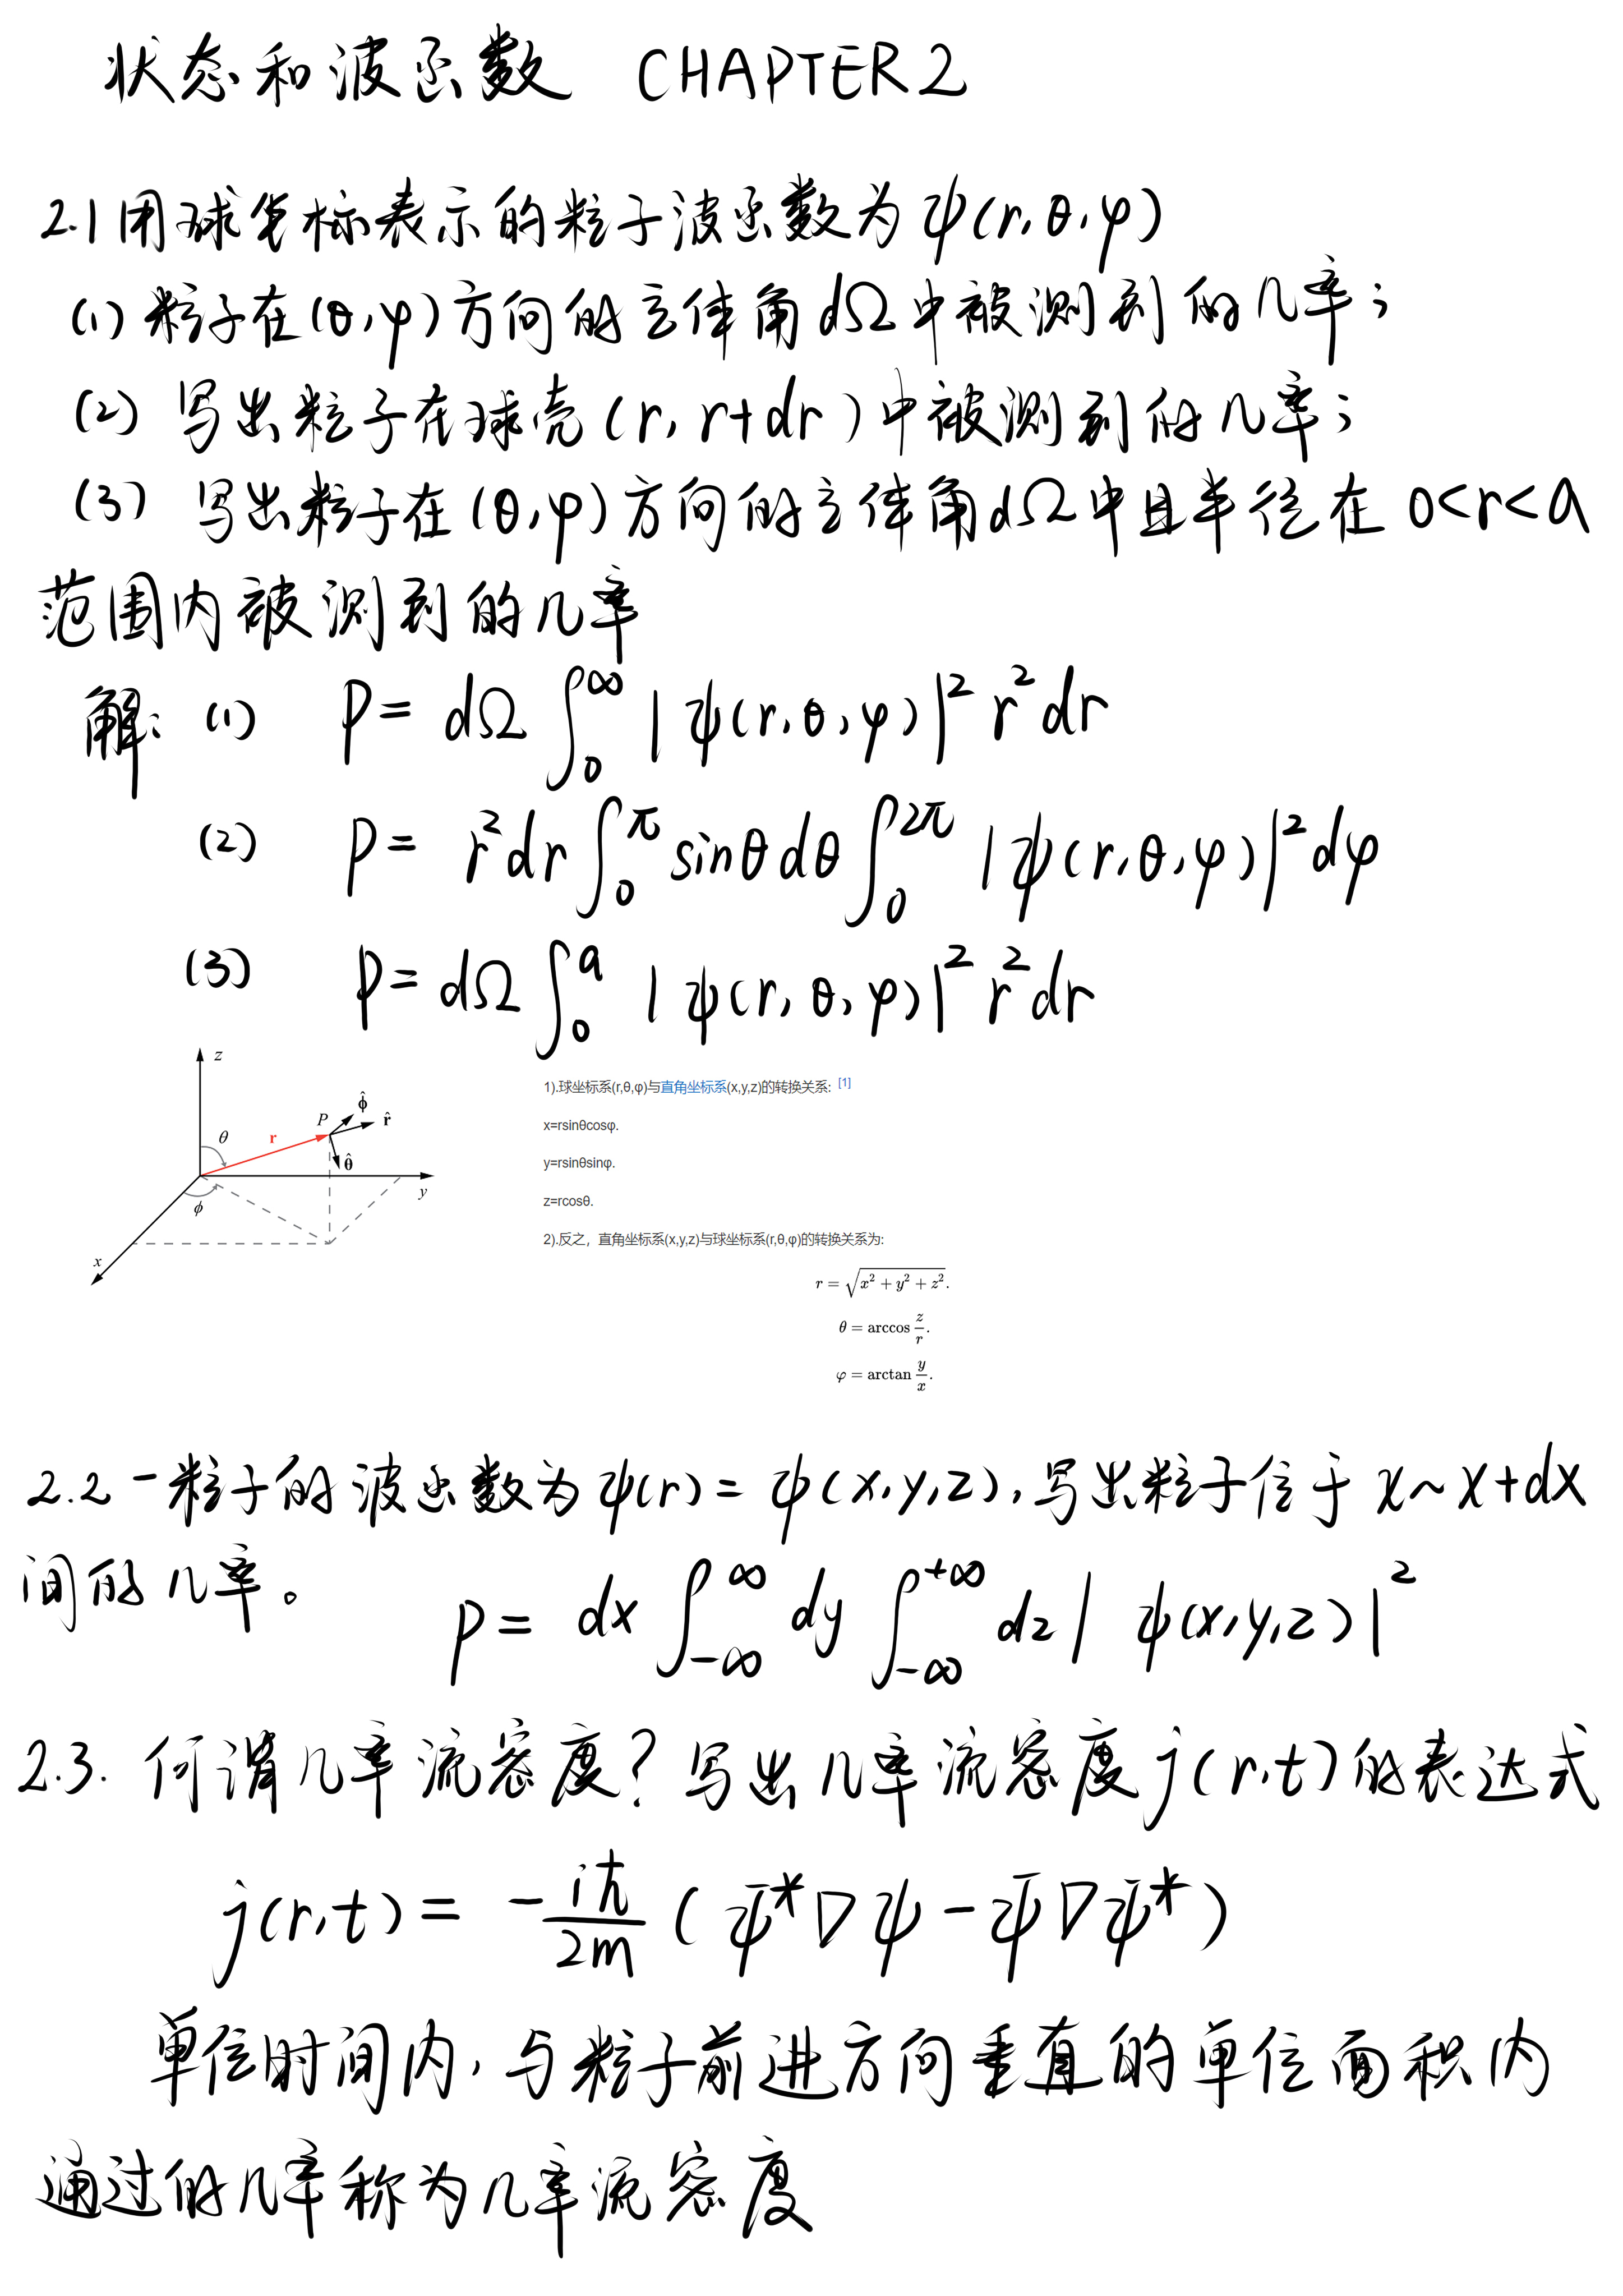 状态和波函数 CHAPTER 2
2.1 用球坐标表示的粒子波函数为 ψ(r,θ,φ)
(1) 粒子在(θ,φ)方向的立体角dΩ中被测到的几率;
(2) 写出粒子在球壳(r, r+dr)中被测到的几率;
(3) 写出粒子在(θ,φ)方向的立体角dΩ中且半径在 0<r<a
范围内被测到的几率
解: (1) P = dΩ ∫₀^∞ |ψ(r,θ,φ)|² r² dr
(2) P = r² dr ∫₀^π sinθ dθ ∫₀^2π |ψ(r,θ,φ)|² dφ
(3) P = dΩ ∫₀^a |ψ(r,θ,φ)|² r² dr
z
θ
r
P
φ̂
r̂
θ̂
y
ϕ
x
1).球坐标系(r,θ,φ)与直角坐标系(x,y,z)的转换关系: [1]
x=rsinθcosφ.
y=rsinθsinφ.
z=rcosθ.
2).反之，直角坐标系(x,y,z)与球坐标系(r,θ,φ)的转换关系为:
r = √(x² + y² + z²).
θ = arccos z/r.
φ = arctan y/x.
2.2 一粒子的波函数为 ψ(r) = ψ(x,y,z), 写出粒子位于 x~x+dx
间的几率。 P = dx ∫_{-∞}^{∞} dy ∫_{-∞}^{+∞} dz |ψ(x,y,z)|²
2.3. 何谓几率流密度? 写出几率流密度 j(r,t) 的表达式
j(r,t) = - iħ/2m (ψ*∇ψ - ψ∇ψ*)
单位时间内, 与粒子前进方向垂直的单位面积内
通过的几率称为几率流密度